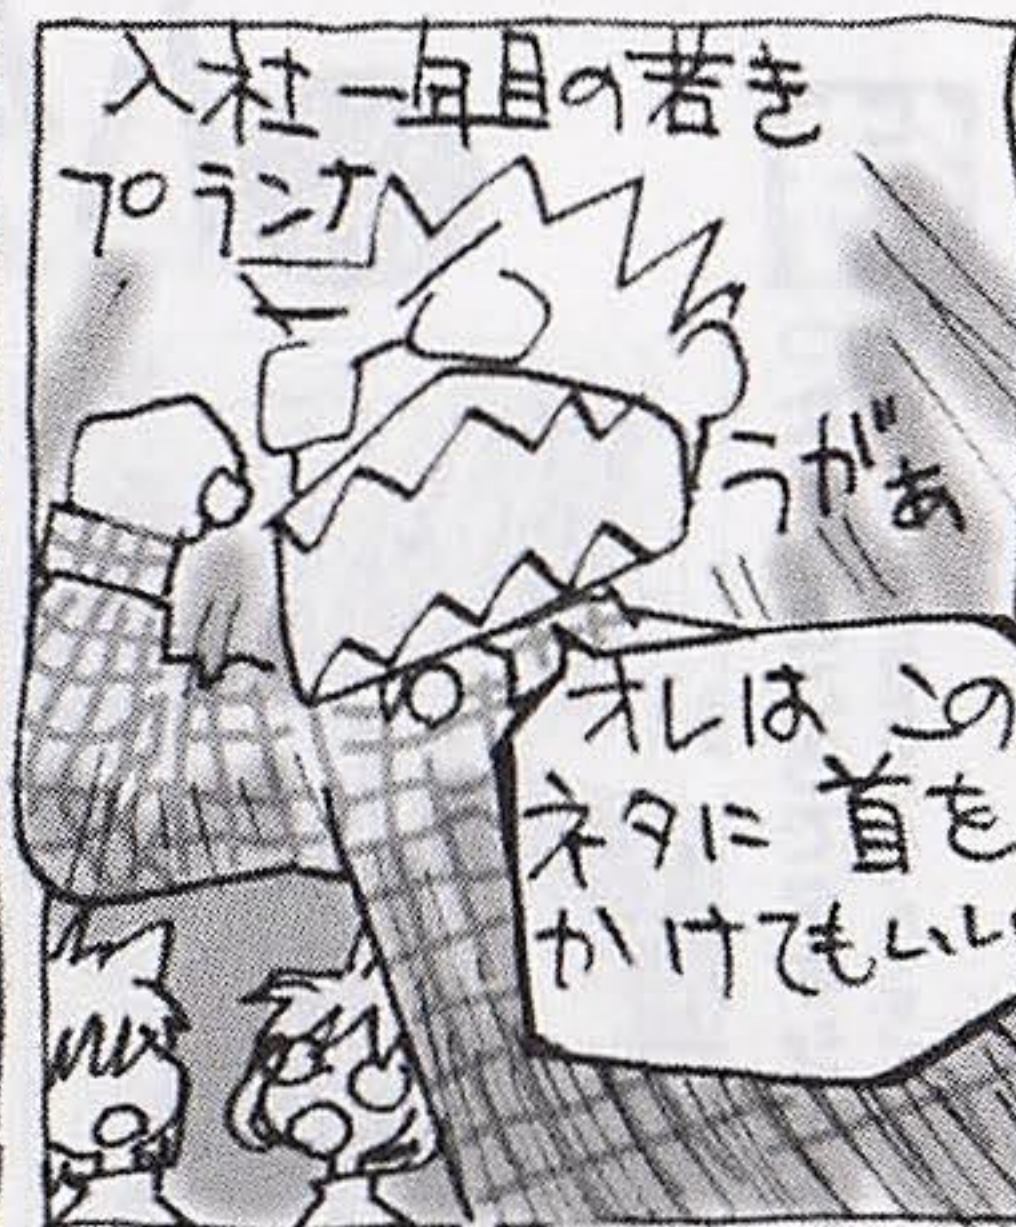 入社一年目の若き
プランナー
うがあ
オレは この
ネタに 首を
かけてもいい